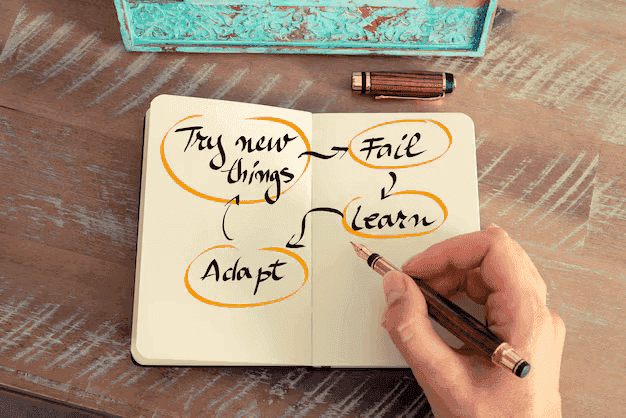 Try new
things
Fail
Learn
Adapt